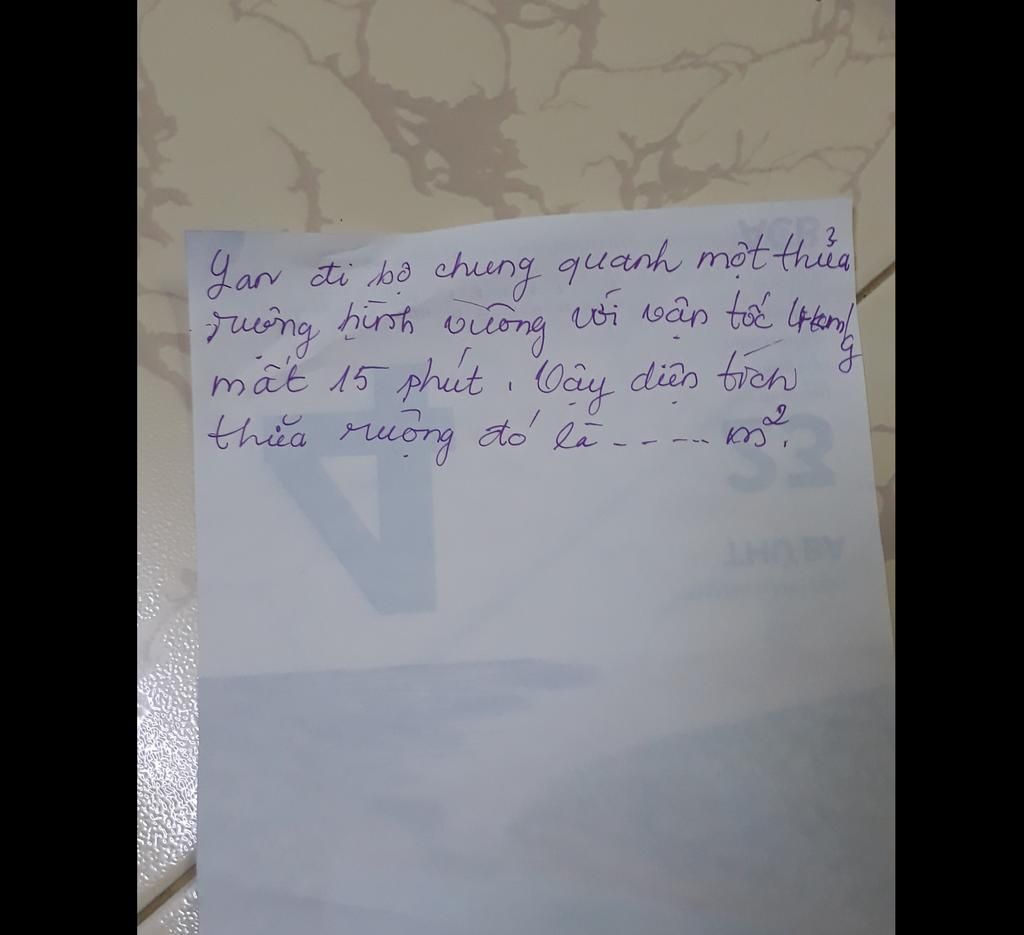 Lan đi bộ chung quanh một thửa
ruộng hình vuông với vận tốc 4km/g
mất 15 phút. Vậy diện tích
thửa ruộng đó là ----- m².
ACB
4
23
THỨ BA